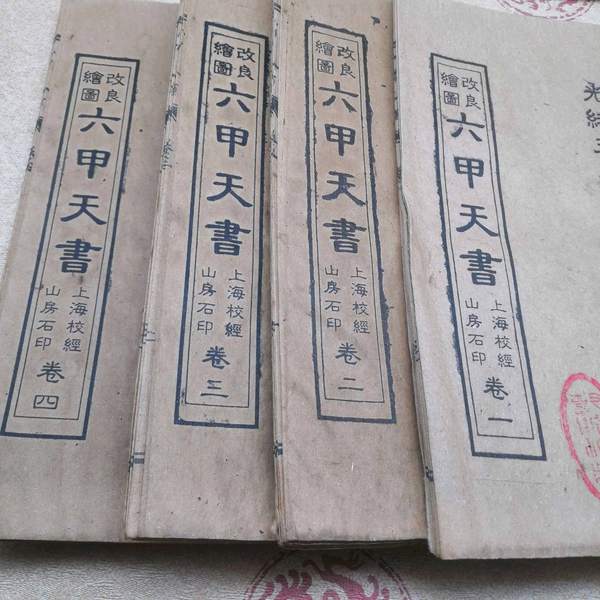 光緒
改良
繪圖
六甲天書
上海校經
山房石印
卷一
改良
繪圖
六甲天書
上海校經
山房石印
卷二
改良
繪圖
六甲天書
上海校經
山房石印
卷三
改良
繪圖
六甲天書
上海校經
山房石印
卷四